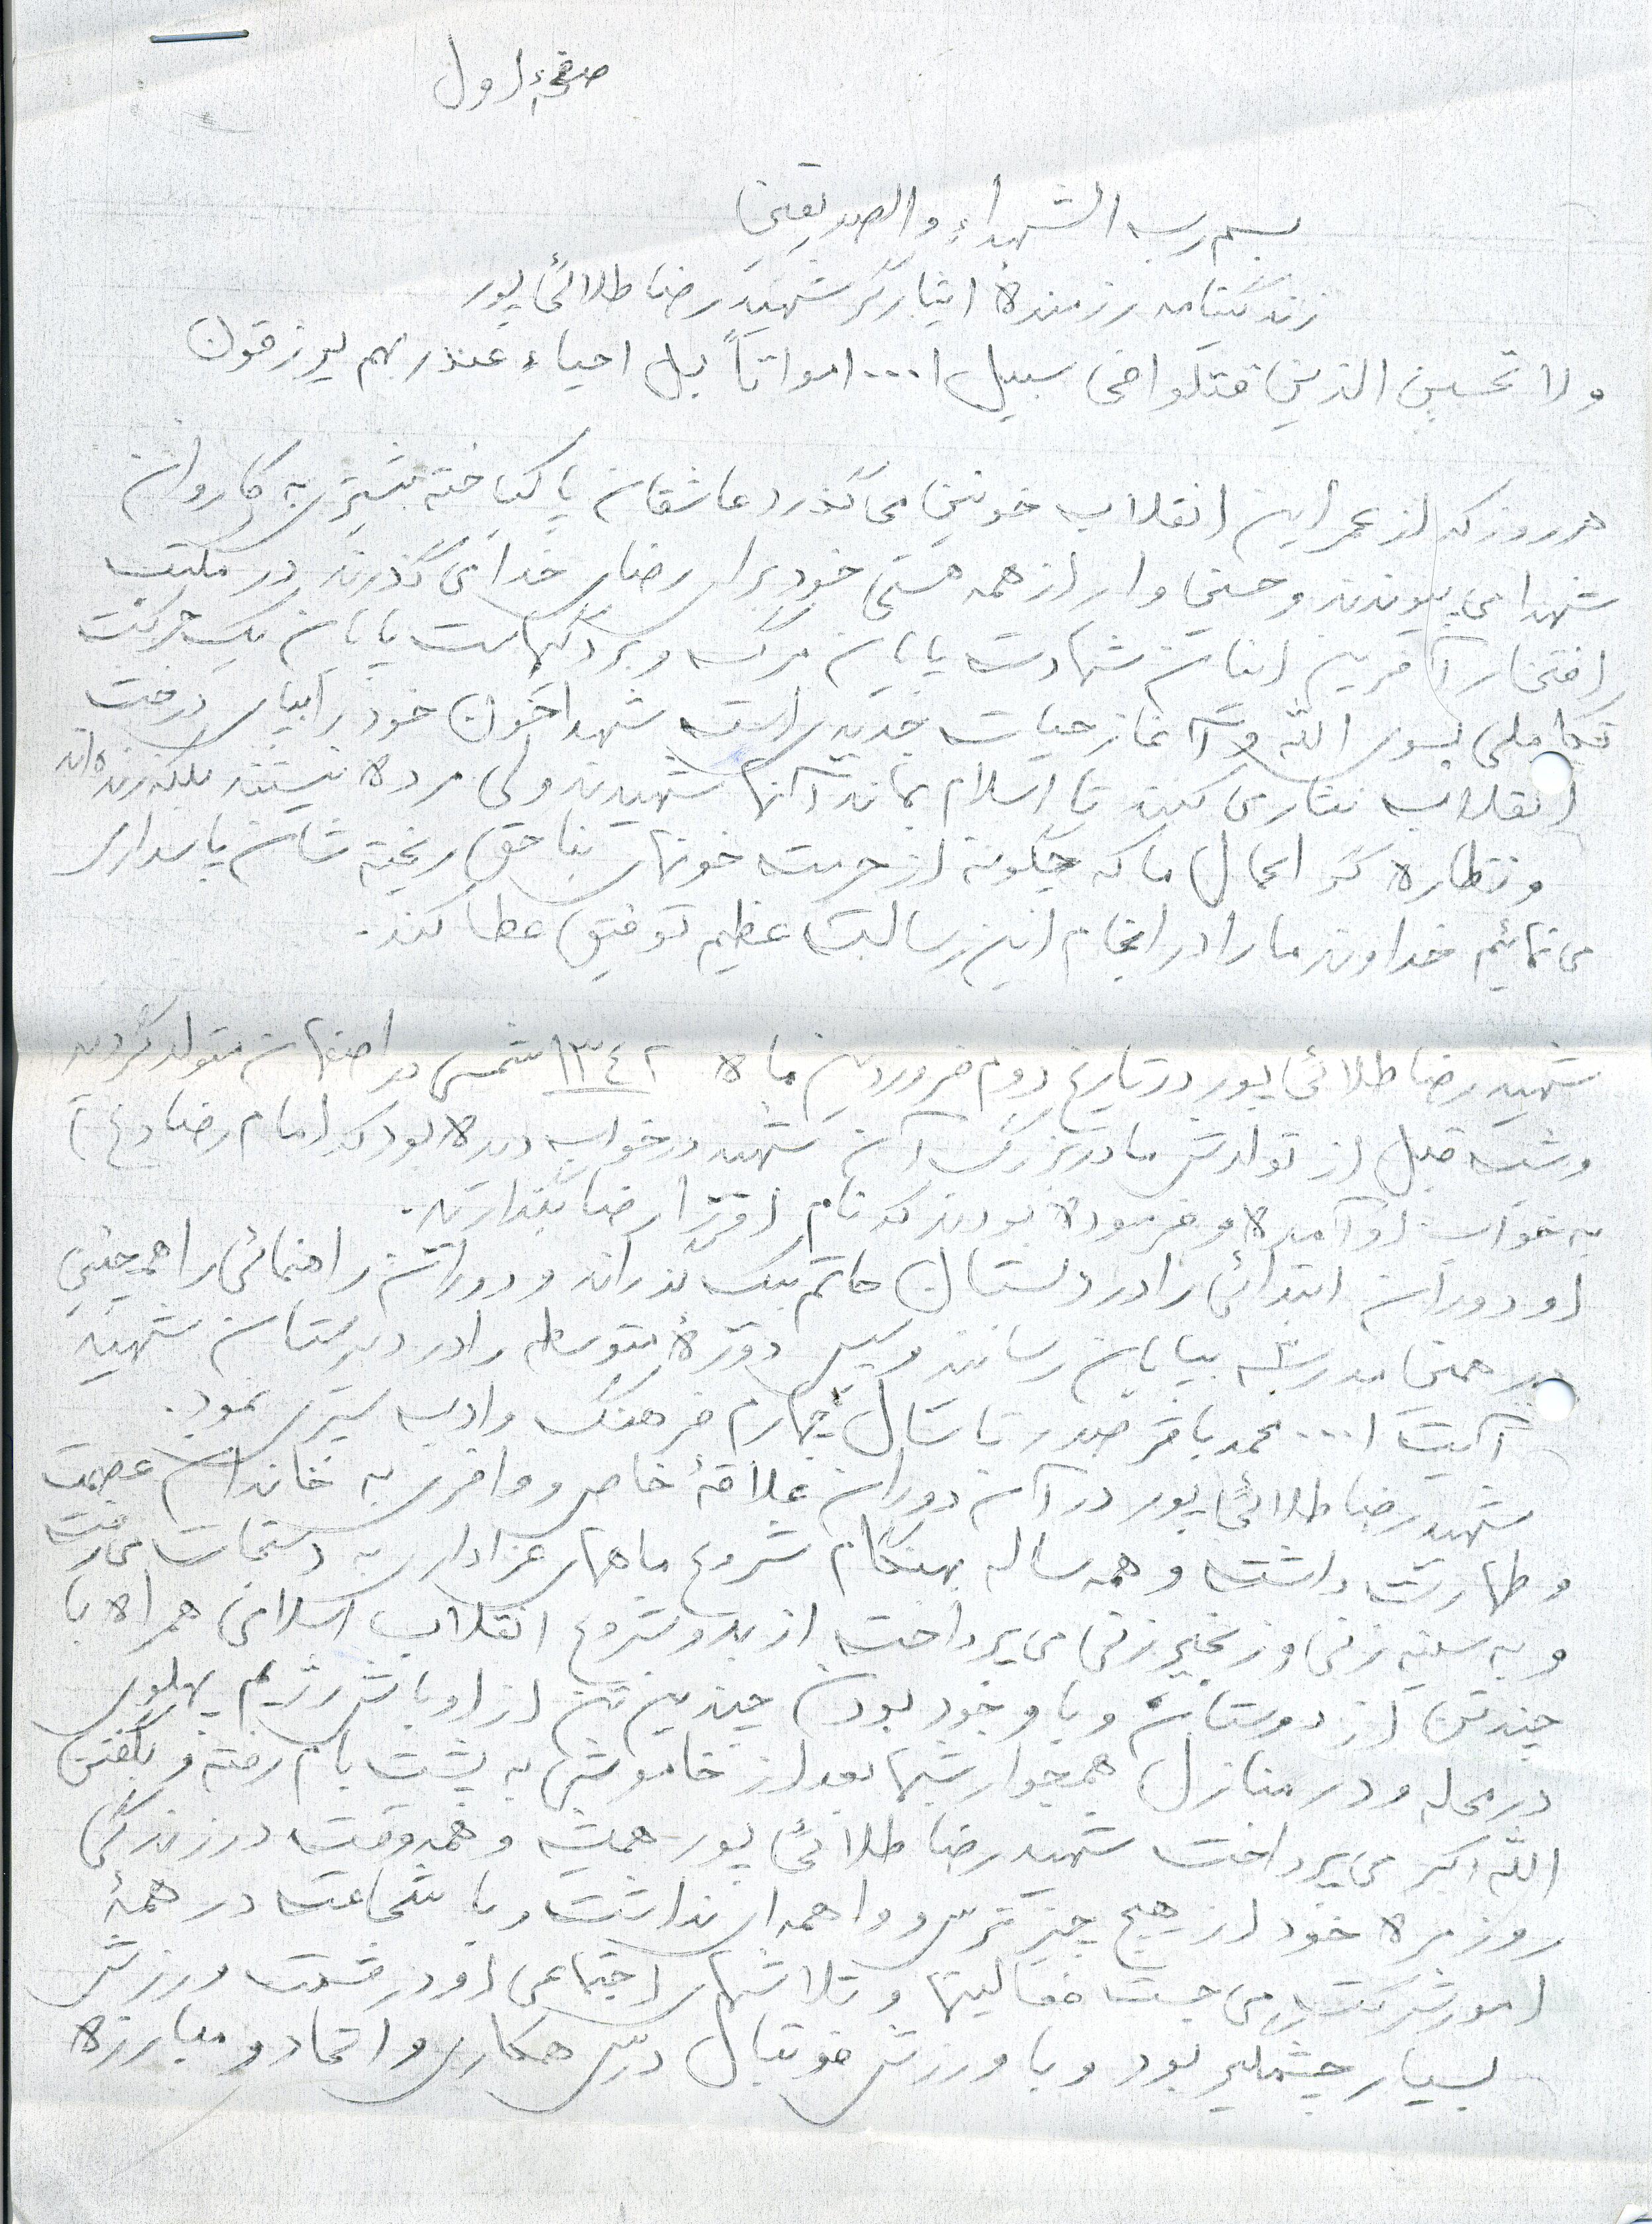 صفحهٔ اول
بسم رب الشهداء والصدیقین
زندگینامه رزمندهٔ ایثارگر شهید رضا طلائی پور
ولا تحسبن الذین قتلوا فی سبیل ا... امواتاً بل احیاء عند ربهم یرزقون
هر روز که از عمر این انقلاب خونین می گذرد عاشقان پاکباخته بیشتری به کاروان
شهدا می پیوندند و حسین وار از همه هستی خود برای رضای خدا می گذرند در مکتب
افتخار آفرین اینان شهادت پایان مرگ و بردگیهاست پایان یک حرکت
تکاملی بسوی الله و آغاز حیات جدیدی است شهدا خون خود را بپای درخت
انقلاب نثار می کنند تا اسلام بماند آنها شهیدند ولی مرده نیستند بلکه زنده اند
و نظاره گر اعمال ما که چگونه از حرمت خونهای بناحق ریخته شان پاسداری
می نمائیم خداوند ما را در انجام این رسالت عظیم توفیق عطا کند.
شهید رضا طلائی پور در تاریخ دوم فروردین ماه ۱۳۴۲ شمسی در اصفهان متولد گردید
و شب قبل از تولدش مادربزرگ آن شهید در خواب دیده بود که امام رضا (ع)
به خواب او آمده و فرموده بودند که نام او را رضا بگذارید.
او دوران ابتدائی را در دبستان حاتم بیک گذراند و دوران راهنمائی را همچنین
در همین مدرسه بپایان رساند و سپس دورهٔ متوسطه را در دبیرستان شهید
آیت ا... محمد باقر صدر تا سال چهارم فرهنگ و ادب سپری نمود.
شهید رضا طلائی پور در آن دوران علاقهٔ خاص و وافری به خاندان عصمت
و طهارت داشت و همه ساله بهنگام شروع ماههای عزاداری به دستجات می رفت
و به سینه زنی و زنجیر زنی می پرداخت از بدو شروع انقلاب اسلامی همراه با
چند تن از دوستان و با وجود بودن چندین تن از اوباش رژیم پهلوی
در محله و در منازل همجوار شبها بعد از خاموشی به پشت بام رفته و بگفتن
الله اکبر می پرداخت شهید رضا طلائی پور همیشه و همه وقت در زندگی
روزمره خود از هیچ چیز ترس و واهمه ای نداشت و با شجاعت در همهٔ
امور شرکت می جست فعالیتها و تلاشهای اجتماعی او در قسمت ورزش
بسیار چشمگیر بود و با ورزش فوتبال درس همکاری و اتحاد و مبارزه